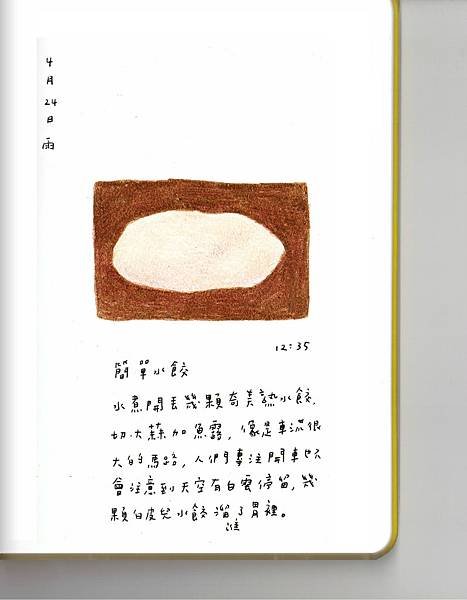 4月24日 雨
12:35
簡單水餃
水煮開丟幾顆奇美熟水餃,
切大蒜加魚露,像是車流很
大的馬路,人們專注開車也只
會注意到天空有白雲停留,幾
顆白皮兒水餃溜進了胃裡。